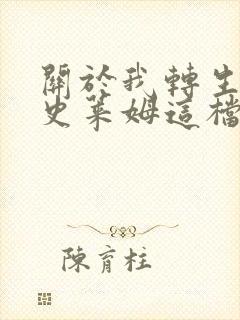 關於我轉生
史萊姆這檔
陳育柱